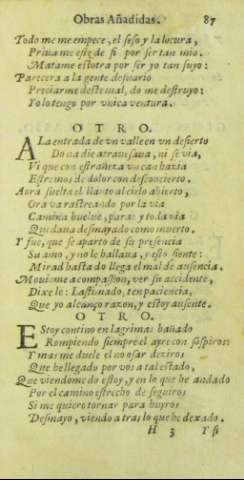 Obras Añadidas. 87
Todo me me empece, el seso y la locura,
Priuame este de si por ser tan mio.
Matame estotra por ser yo tan suyo:
Parecera a la gente desuario
Preciarme deste mal, do me destruyo:
Yo lo tengo por vnica ventura.
OTRO.
A La entrada de vn valle en vn desierto
Do nadie atrauesaua, ni se via,
Vi que con estrañeza vn can hazia
Estremos de dolor con desconcierto.
Aora suelta el llanto al cielo abierto,
Ora va rastreando por la via
Camina buelue, para y todavia
Quedaua desmayado como muerto.
Y fue, que se aparto de su presencia
Su amo, y no le hallaua, y esto siente:
Mirad hasta do llega el mal de ausencia.
Mouiome a compassion, ver su accidente,
Dixele: Lastimado, ten paciencia,
Que yo alcanço razon, y estoy ausente.
OTRO.
EStoy contino en lagrimas bañado
Rompiendo siempre el ayre con sospiros:
Y mas me duele el no osar deziros
Que he llegado por vos a tal estado,
Que viendome do estoy, y en lo que he andado
Por el camino estrecho de seguiros
Si me quiero tornar para huyros
Desmayo, viendo atras lo que he dexado.
H 3 Y si